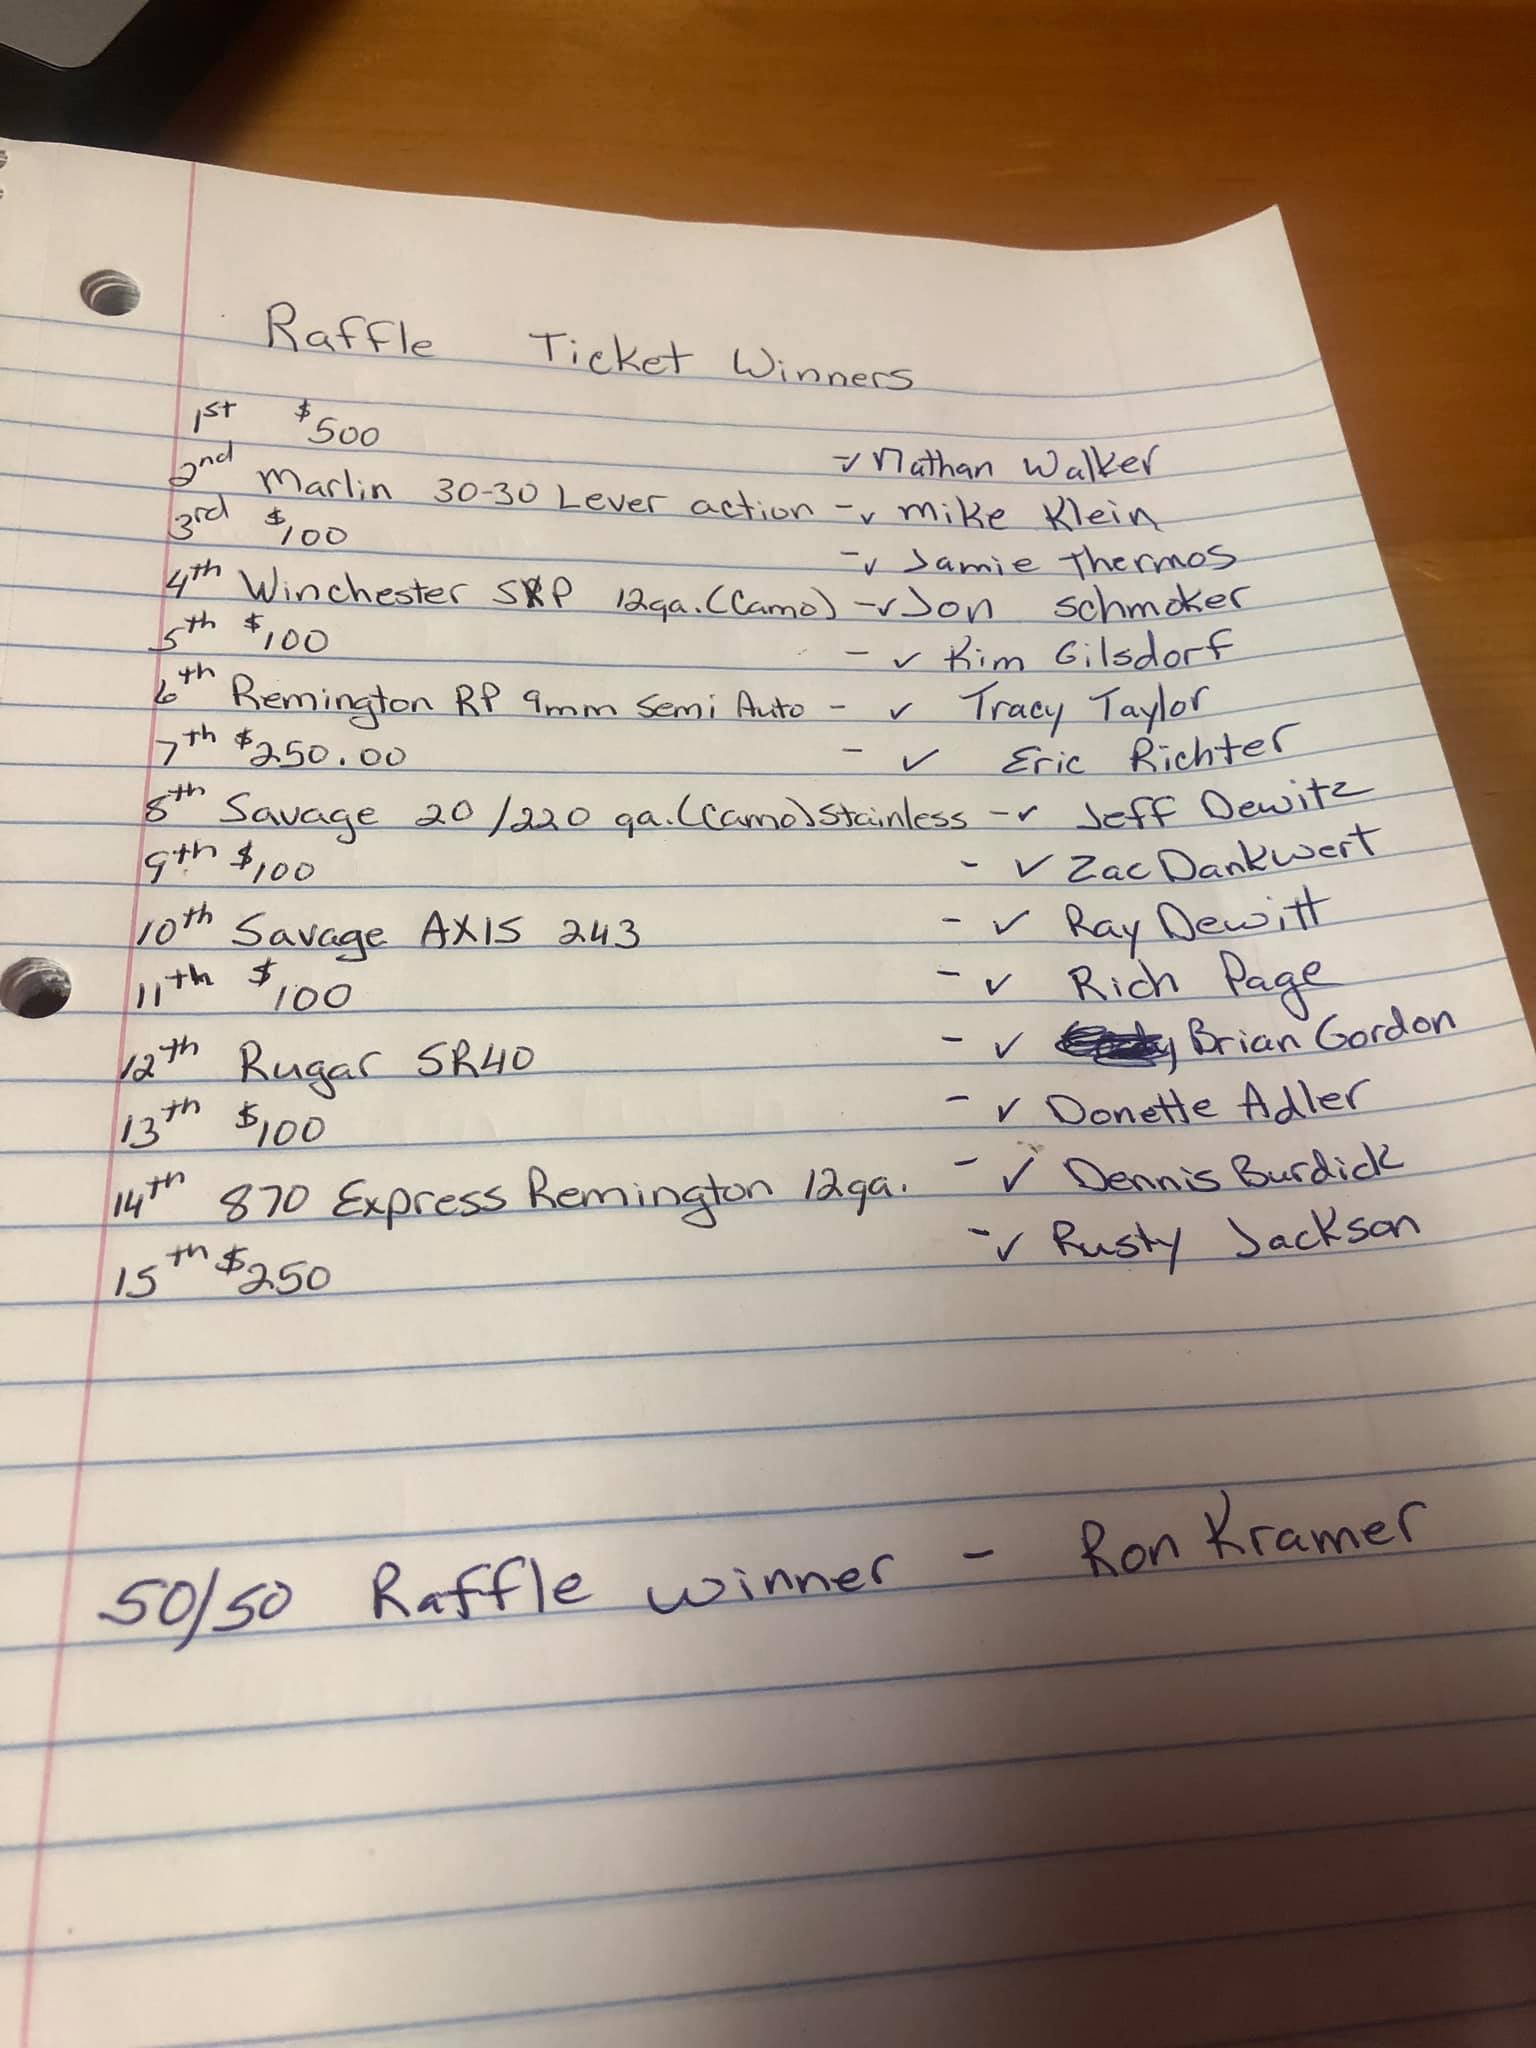 Raffle Ticket Winners
1st $500 - ✓ Nathan Walker
2nd Marlin 30-30 Lever action - ✓ Mike Klein
3rd $100 - ✓ Jamie Thermos
4th Winchester SXP 12ga. (Camo) - ✓ Jon Schmoker
5th $100 - ✓ Kim Gilsdorf
6th Remington RP 9mm Semi Auto - ✓ Tracy Taylor
7th $250.00 - ✓ Eric Richter
8th Savage 20/220 ga. (Camo) Stainless - ✓ Jeff Dewitz
9th $100 - ✓ Zac Dankwert
10th Savage AXIS 243 - ✓ Ray Dewitt
11th $100 - ✓ Rich Page
12th Rugar SR40 - ✓ Brian Gordon
13th $100 - ✓ Donette Adler
14th 870 Express Remington 12ga. - ✓ Dennis Burdick
15th $250 - ✓ Rusty Jackson
50/50 Raffle winner - Ron Kramer